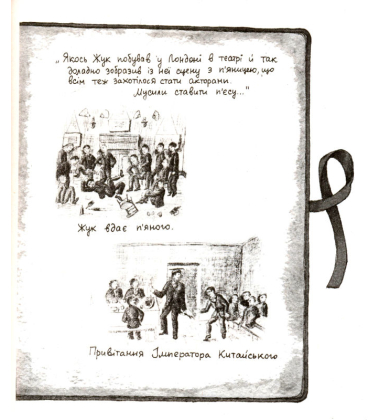 „Якось Жук побував у Лондоні в театрі й так
доладно зобразив із неї сцену з п'яницею, що
всім теж захотілося стати акторами.
Мусили ставити п'єсу..."
Жук вдає п'яного.
Привітання Імператора Китайського